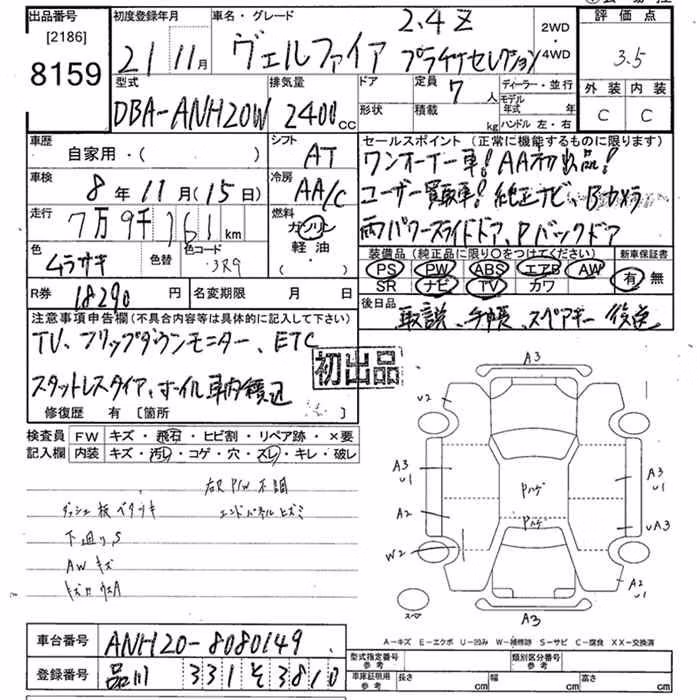 出品番号
[2186]
8159
初度登録年月
21 11月
車名・グレード
ヴェルファイア 2.4Z
プラチナセレクション
2WD
4WD
評価点
3.5
外装 内装
C C
型式
DBA-ANH20W
排気量
2400cc
ドア
形状
定員 7人
積載 kg
ディーラー・並行
モデル年式 年
ハンドル 左・右
車歴
自家用・( )
シフト
AT
セールスポイント(正常に機能するものに限ります)
ワンオーナー車!AA初出品!
ユーザー買取車!純正ナビ、Bカメラ
両パワースライドドア、Pバックドア
車検
8年11月(15日)
冷房
AA/C
走行
7万9千161km
燃料
ガソリン
軽油
・( )
色
ムラサキ
色替
色コード
3R9
装備品(純正品に限り○をつけてください)
PS PW ABS エアB AW
SR ナビ TV カワ
新車保証書
有 無
R券 18290円
名変期限 月 日
後日品
取説、手帳、スペアキー 後送
注意事項申告欄(不具合内容等は具体的に記入して下さい)
TV、フリップダウンモニター、ETC
スタットレスタイヤ、ホイル車内積込
初出品
修復歴 有 [箇所 ]
検査員
記入欄
FW キズ・飛石・ヒビ割・リペア跡・×要
内装 キズ・汚レ・コゲ・穴・スレ・キレ・破レ
右P/W不調
ダッシュ板ベタツキ エンドパネルヒズミ
下廻りS
AWキズ
A3
U2
A3
U1
A3
U1
Pハゲ
A2
Pハゲ
UA3
W2
A2
U1
スペア
A3
A-キズ E-エクボ U-凹み W-補修跡 S-サビ C-腐食 XX-交換済
車台番号 ANH20-8080149
登録番号 品川 331 そ 3810
型式指定番号
参考
類別区分番号
参考
車庫証明用
参考
長さ cm 幅 cm 高さ cm